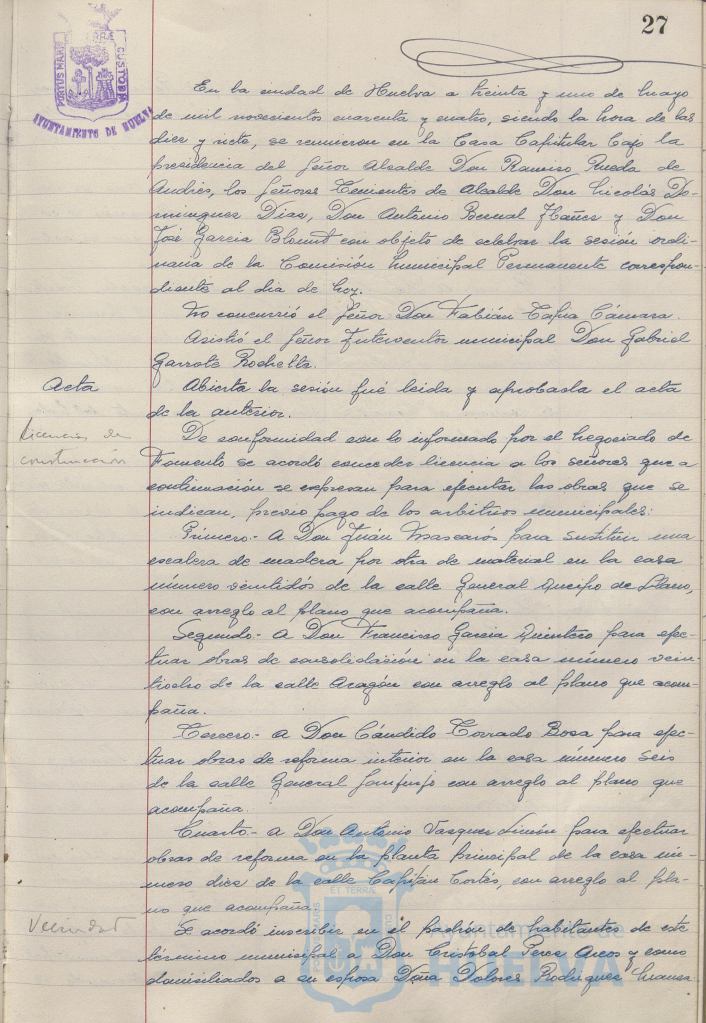 27
PORTUS MARIS ET TERRÆ CUSTODIA
AYUNTAMIENTO DE HUELVA
En la ciudad de Huelva a treinta y uno de mayo
de mil novecientos cuarenta y cuatro, siendo la hora de las
diez y siete, se reunieron en la Casa Capitular bajo la
presidencia del Señor Alcalde Don Ramiro Rueda de
Andres, los Señores Tenientes de Alcalde Don Nicolás Do-
minguez Dias, Don Antonio Bernal Ibañez y Don
José Garcia Blount con objeto de celebrar la sesión ordi-
naria de la Comisión Municipal Permanente correspon-
diente al dia de hoy.
No concurrió el Señor Don Fabián Tapia Cámara.
Asistió el Señor Interventor municipal Don Gabriel
Garrote Rochelt.
Acta
Abierta la sesión fué leida y aprobada el acta
de la anterior.
Licencias de
construcción
De conformidad con lo informado por el Negociado de
Fomento se acordó conceder licencia a los señores que a
continuación se expresan para efectuar las obras que se
indican, previo pago de los arbitrios municipales:
Primero.- A Don Juán Mascarós para sustituir una
escalera de madera por otra de material en la casa
número veintidós de la calle General Queipo de Llano,
con arreglo al plano que acompaña.
Segundo.- A Don Francisco Garcia Quintero para efec-
tuar obras de consolidasión en la casa número vein-
tiocho de la calle Aragón con arreglo al plano que acom-
paña.
Tercero.- A Don Cándido Corrado Bosa para efec-
tuar obras de reforma interior en la casa número seis
de la calle General Sanjurjo con arreglo al plano que
acompaña.
Cuarto.- A Don Antonio Vasquez Limón para efectuar
obras de reforma en la planta principal de la casa nú-
mero diez de la calle Capitán Cortés, con arreglo al pla-
no que acompaña.
Vecindad
Se acordó inscribir en el padrón de habitantes de este
término municipal a Don Cristobal Perez Arcos y como
domiciliados a su esposa Doña Dolores Rodriguez
Ayuntamiento de
HUELVA